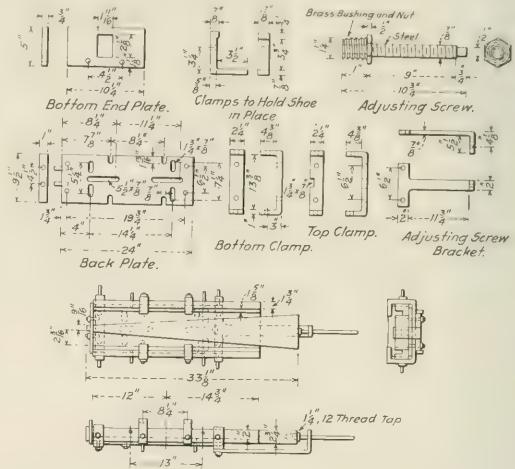 3/4"
1 11/16"
5"
2 5/8"
1 1/8"
4 1/2"
10 1/4"
Bottom End Plate.
7/8"
3 1/4"
3 1/2"
5/8"
1 7/8"
5 1/4"
7/8"
Clamps to Hold Shoe
in Place
Brass Bushing and Nut
1/2"
Steel
7/8"
1 1/4"
1"
9"
3/4"
10 3/4"
1 1/2"
Adjusting Screw.
1"
8 1/4"
11 1/4"
7 7/8"
8 1/4"
1 3/4" x 7/8"
9 1/2"
4 1/2"
5 1/4"
5 1/2" x 7/8"
7/8"
6 1/2"
7 1/4"
1 3/4"
19 3/4"
4"
14 1/4"
24"
Back Plate.
2 1/4"
4 3/8"
13 3/8"
3"
Bottom Clamp.
2 1/4"
4 3/8"
1 3/4" x 7/8"
6 1/2"
Top Clamp.
7/8"
5 1/2"
4 1/8"
6 1/2"
2"
2"
11 3/4"
Adjusting Screw
Bracket.
1 5/8"
1 3/4"
9/16"
2 3/16"
33 1/8"
12"
14 3/4"
8 1/4"
1 1/4", 12 Thread Tap
2"
2 3/4"
13"